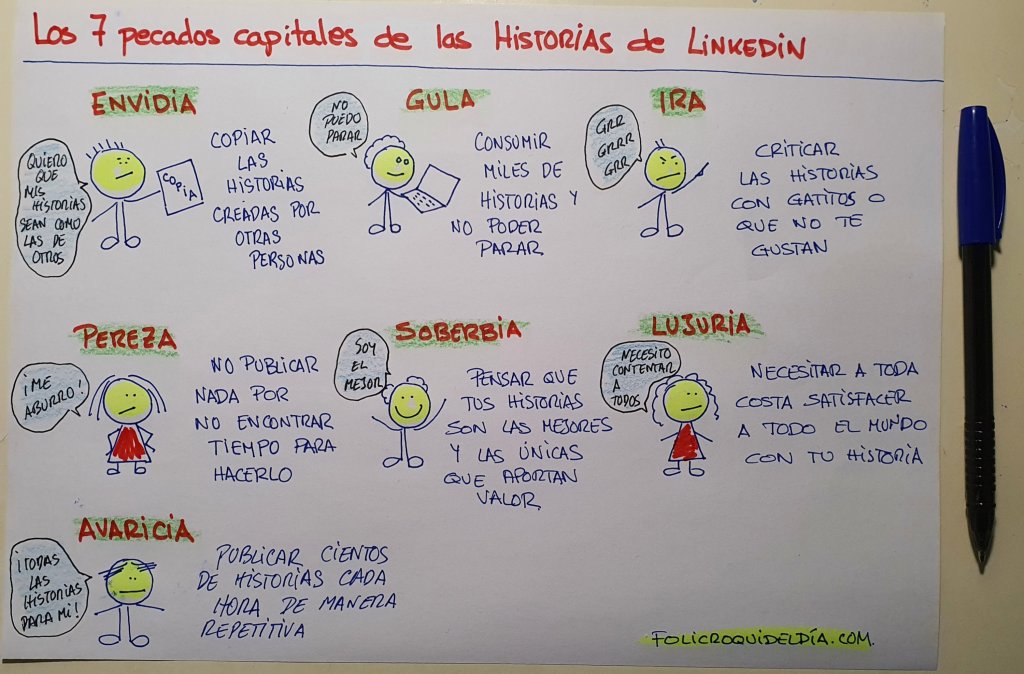 Los 7 pecados capitales de las HISTORIAS de LINKEDIN
ENVIDIA
QUIERO
QUE
MIS
HISTORIAS
SEAN COMO
LAS DE
OTROS
COPIA
COPIAR
LAS
HISTORIAS
CREADAS POR
OTRAS
PERSONAS
GULA
NO
PUEDO
PARAR
CONSUMIR
MILES DE
HISTORIAS Y
NO PODER
PARAR
IRA
GRR
GRRR
GRR
CRITICAR
LAS HISTORIAS
CON GATITOS O
QUE NO TE
GUSTAN
PEREZA
¡ME
ABURRO!
NO PUBLICAR
NADA POR
NO ENCONTRAR
TIEMPO PARA
HACERLO
SOBERBIA
SOY
EL
MEJOR
PENSAR QUE
TUS HISTORIAS
SON LAS MEJORES
Y LAS ÚNICAS
QUE APORTAN
VALOR
LUJURIA
NECESITO
CONTENTAR
A
TODOS
NECESITAR A TODA
COSTA SATISFACER
A TODO EL MUNDO
CON TU HISTORIA
AVARICIA
¡TODAS
LAS
HISTORIAS
PARA MI!
PUBLICAR CIENTOS
DE HISTORIAS CADA
HORA DE MANERA
REPETITIVA
FOLICROQUIDELDÍA.COM